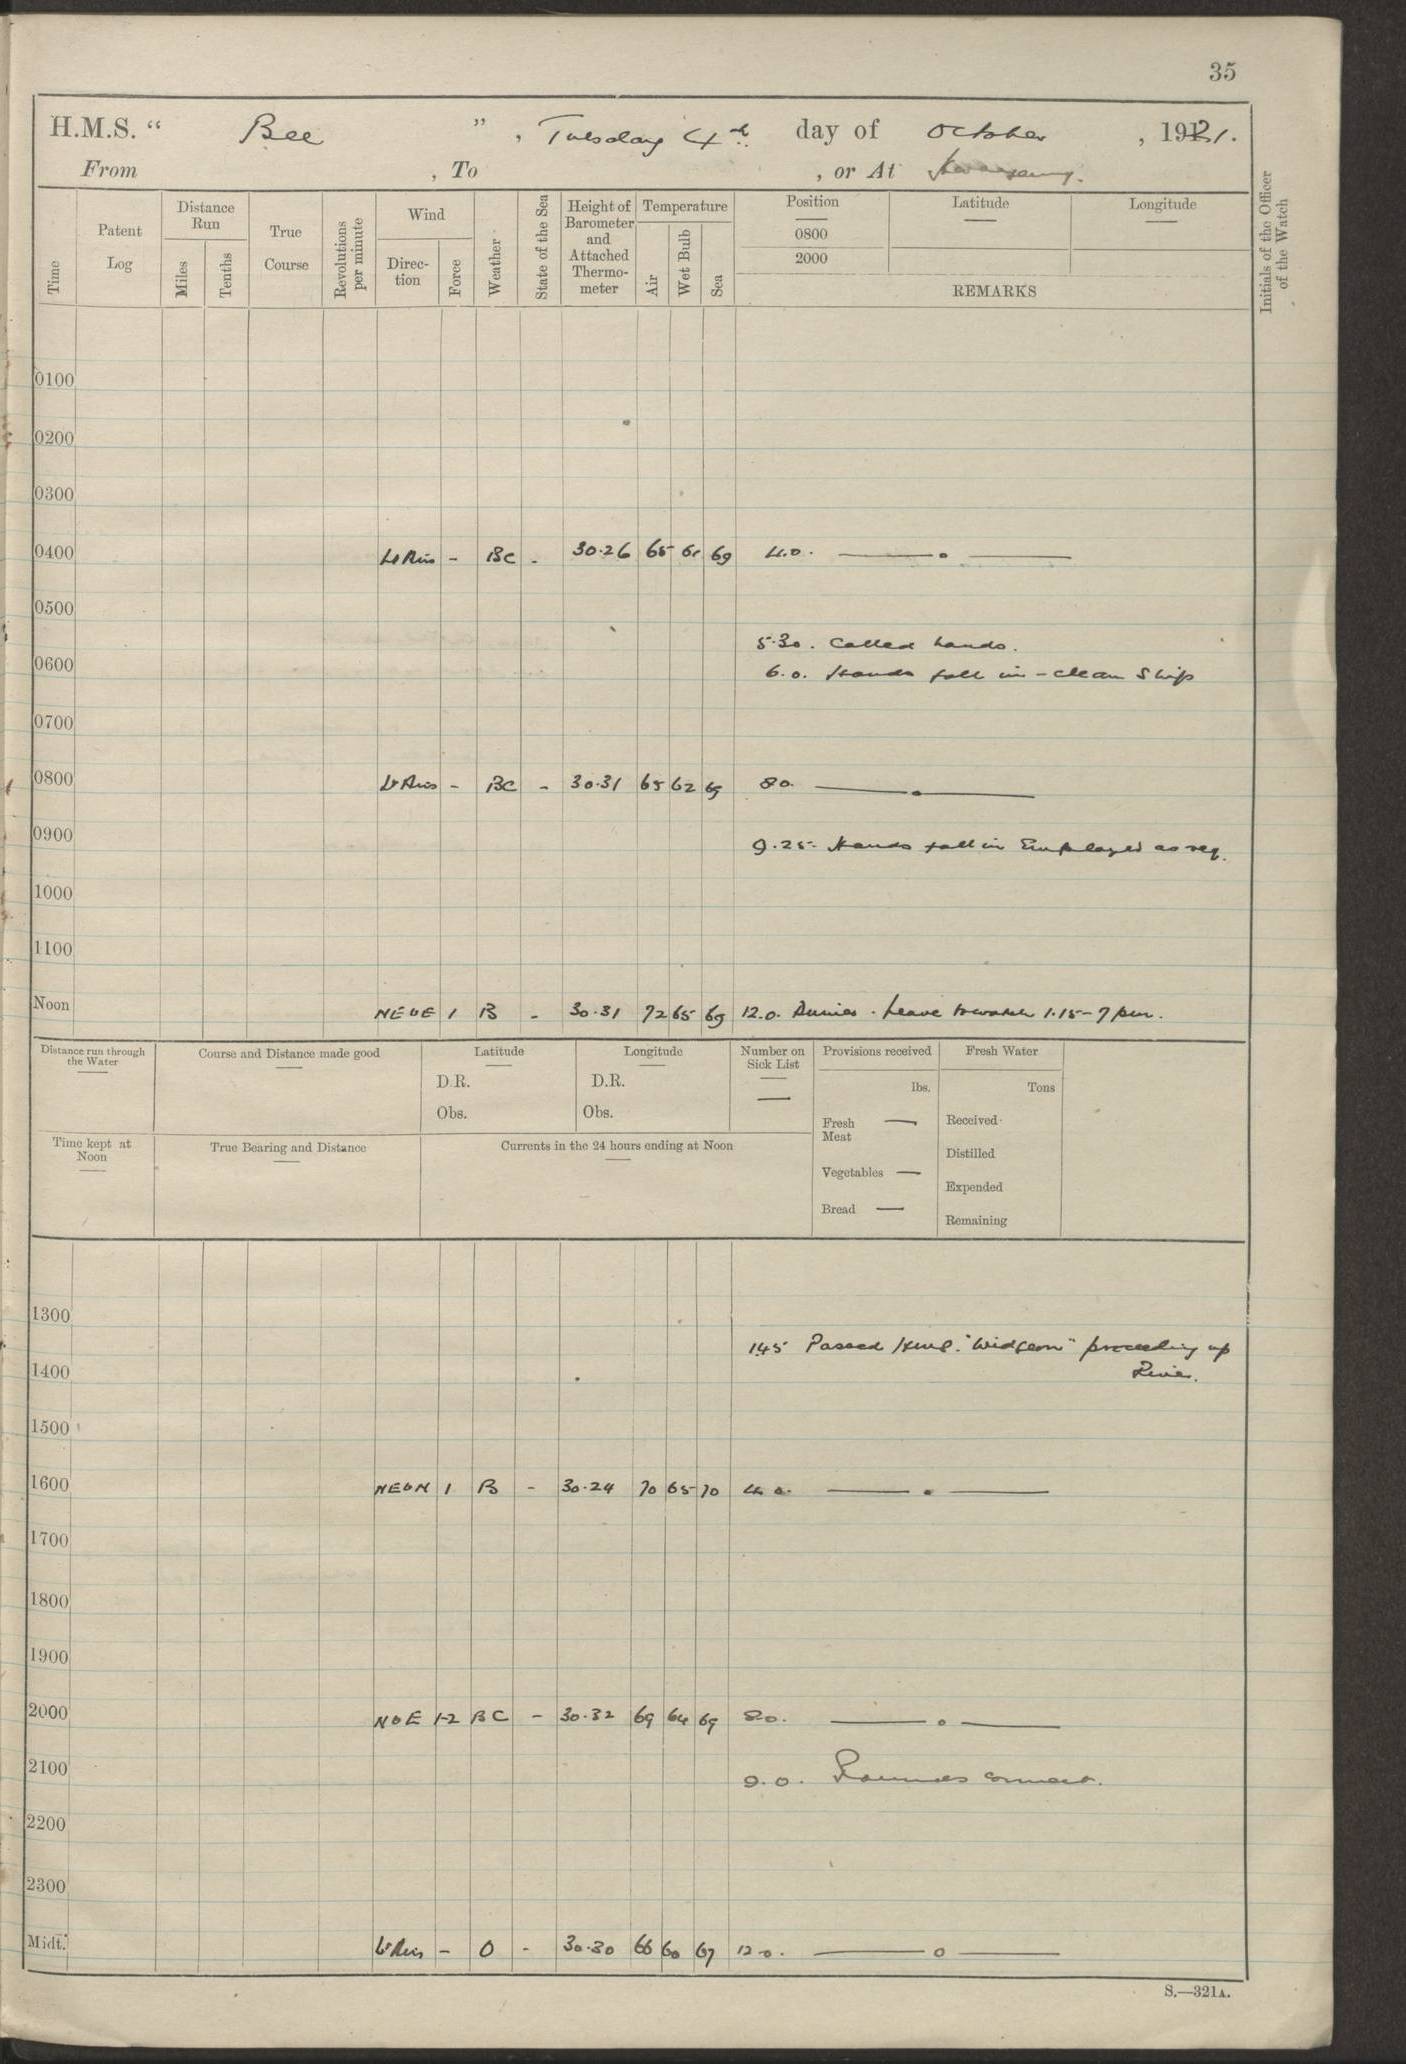 35
H.M.S. “ Bee ” , Tuesday 4th day of October , 1921.
From , To , or At
Time
Patent Log
Distance Run
Miles
Tenths
True Course
Revolutions per minute
Wind
Direc-tion
Force
Weather
State of the Sea
Height of Barometer and Attached Thermo-meter
Temperature
Air
Wet Bulb
Sea
Position
0800
2000
Latitude
Longitude
REMARKS
Initials of the Officer of the Watch
0100
0200
0300
0400 Lt Airs - BC - 30.26 65 61 69 4.0. —— o ——
0500
5.30. Called hands.
0600
6.0. Hands fall in - clean Ship
0700
0800 Lt Airs - BC - 30.31 65 62 69 8 0. —— . ——
0900
9.25. Hands fall in Employed as req.
1000
1100
Noon NEbE 1 B - 30.31 72 65 69 12.0. Dinner. Leave to watch 1.15 - 7 pm.
Distance run through the Water
Course and Distance made good
Latitude
D.R.
Obs.
Longitude
D.R.
Obs.
Number on Sick List
—
Provisions received
lbs.
Fresh Meat —
Vegetables —
Bread —
Fresh Water
Tons
Received
Distilled
Expended
Remaining
Time kept at Noon
True Bearing and Distance
Currents in the 24 hours ending at Noon
1300
1.45 Passed H.M.S. "Widgeon" proceeding up
River.
1400
1500
1600 NEbN 1 B - 30.24 70 65 70 4. 0. —— . ——
1700
1800
1900
2000 NbE 1-2 BC - 30.32 69 64 69 8.0. —— o ——
2100
9.0. Rounds correct.
2200
2300
Midt. Lt Airs - O - 30.30 66 60 67 12.0. —— o ——
S.—321A.